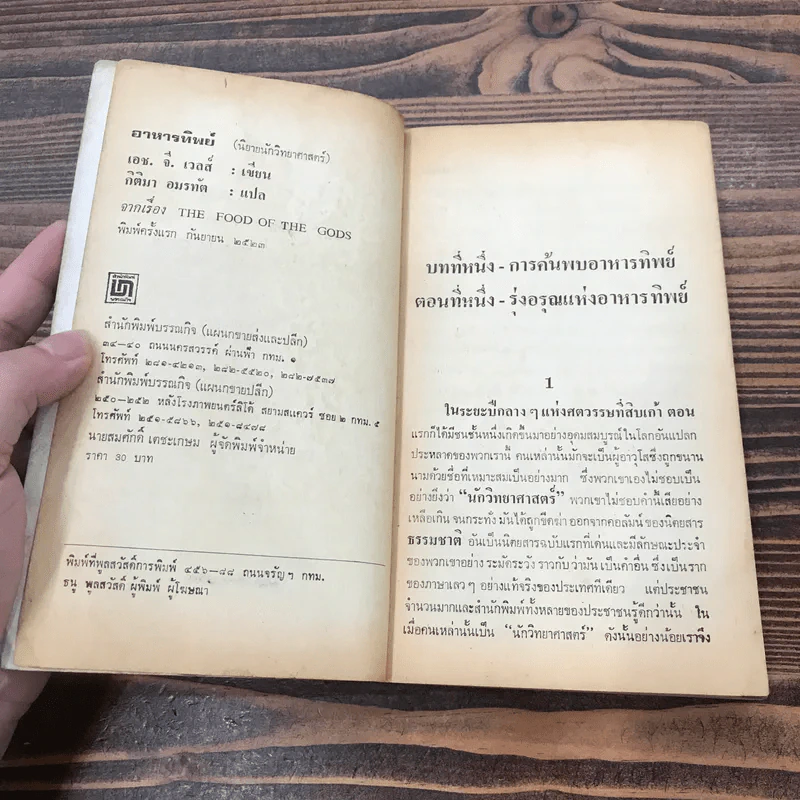 อาหารทิพย์ (นิยายนักวิทยาศาสตร์)
เอช. จี. เวลส์ : เขียน
กิติมา อมรทัต : แปล
จากเรื่อง THE FOOD OF THE GODS
พิมพ์ครั้งแรก กันยายน ๒๕๒๓
สำนักพิมพ์บรรณกิจ (แผนกขายส่งและปลีก)
๓๔—๔๐ ถนนนครสวรรค์ ผ่านฟ้า กทม. ๑
โทรศัพท์ ๒๘๑-๔๒๑๓, ๒๘๒-๕๕๒๐, ๒๘๒-๗๕๓๗
สำนักพิมพ์บรรณกิจ (แผนกขายปลีก)
๒๕๐-๒๕๒ หลังโรงภาพยนตร์ลิโด้ สยามสแควร์ ซอย ๒ กทม. ๕
โทรศัพท์ ๒๕๑-๕๘๖๖, ๒๕๑-๘๔๗๘
นายสมศักดิ์ เตชะเกษม ผู้จัดพิมพ์จำหน่าย
ราคา 30 บาท
พิมพ์ที่พูลสวัสดิ์การพิมพ์ ๔๕๖—๘๘ ถนนจรัญฯ กทม.
ธนู พูลสวัสดิ์ ผู้พิมพ์ ผู้โฆษณา
บทที่หนึ่ง - การค้นพบอาหารทิพย์
ตอนที่หนึ่ง - รุ่งอรุณแห่งอาหารทิพย์
1
ในระยะปีกลาง ๆ แห่งศตวรรษที่สิบเก้า ตอน
แรกก็ได้มีชนชั้นหนึ่งเกิดขึ้นมาอย่างอุดมสมบูรณ์ในโลกอันแปลก
ประหลาดของพวกเรานี้ คนเหล่านั้นมักจะเป็นผู้อาวุโสซึ่งถูกขนาน
นามด้วยชื่อที่เหมาะสมเป็นอย่างมาก ซึ่งพวกเขาเองไม่ชอบเป็น
อย่างยิ่งว่า “นักวิทยาศาสตร์” พวกเขาไม่ชอบคำนี้เสียอย่าง
เหลือเกิน จนกระทั่งมันได้ถูกขีดฆ่า ออกจากคอลัมน์ของนิตยสาร
ธรรมชาติ อันเป็นนิตยสารฉบับแรกที่เด่นและมีลักษณะประจำ
ของพวกเขาอย่าง ระมัดระวัง ราวกับว่ามันเป็นคำอื่น ซึ่งเป็นราก
ของภาษาเลวๆ อย่างแท้จริงของประเทศทีเดียว แต่ประชาชน
จำนวนมากและสำนักพิมพ์ทั้งหลายของประชาชนรู้ดีกว่านั้น ใน
เมื่อคนเหล่านั้นเป็น “นักวิทยาศาสตร์” ดังนั้นอย่างน้อยเราจึง